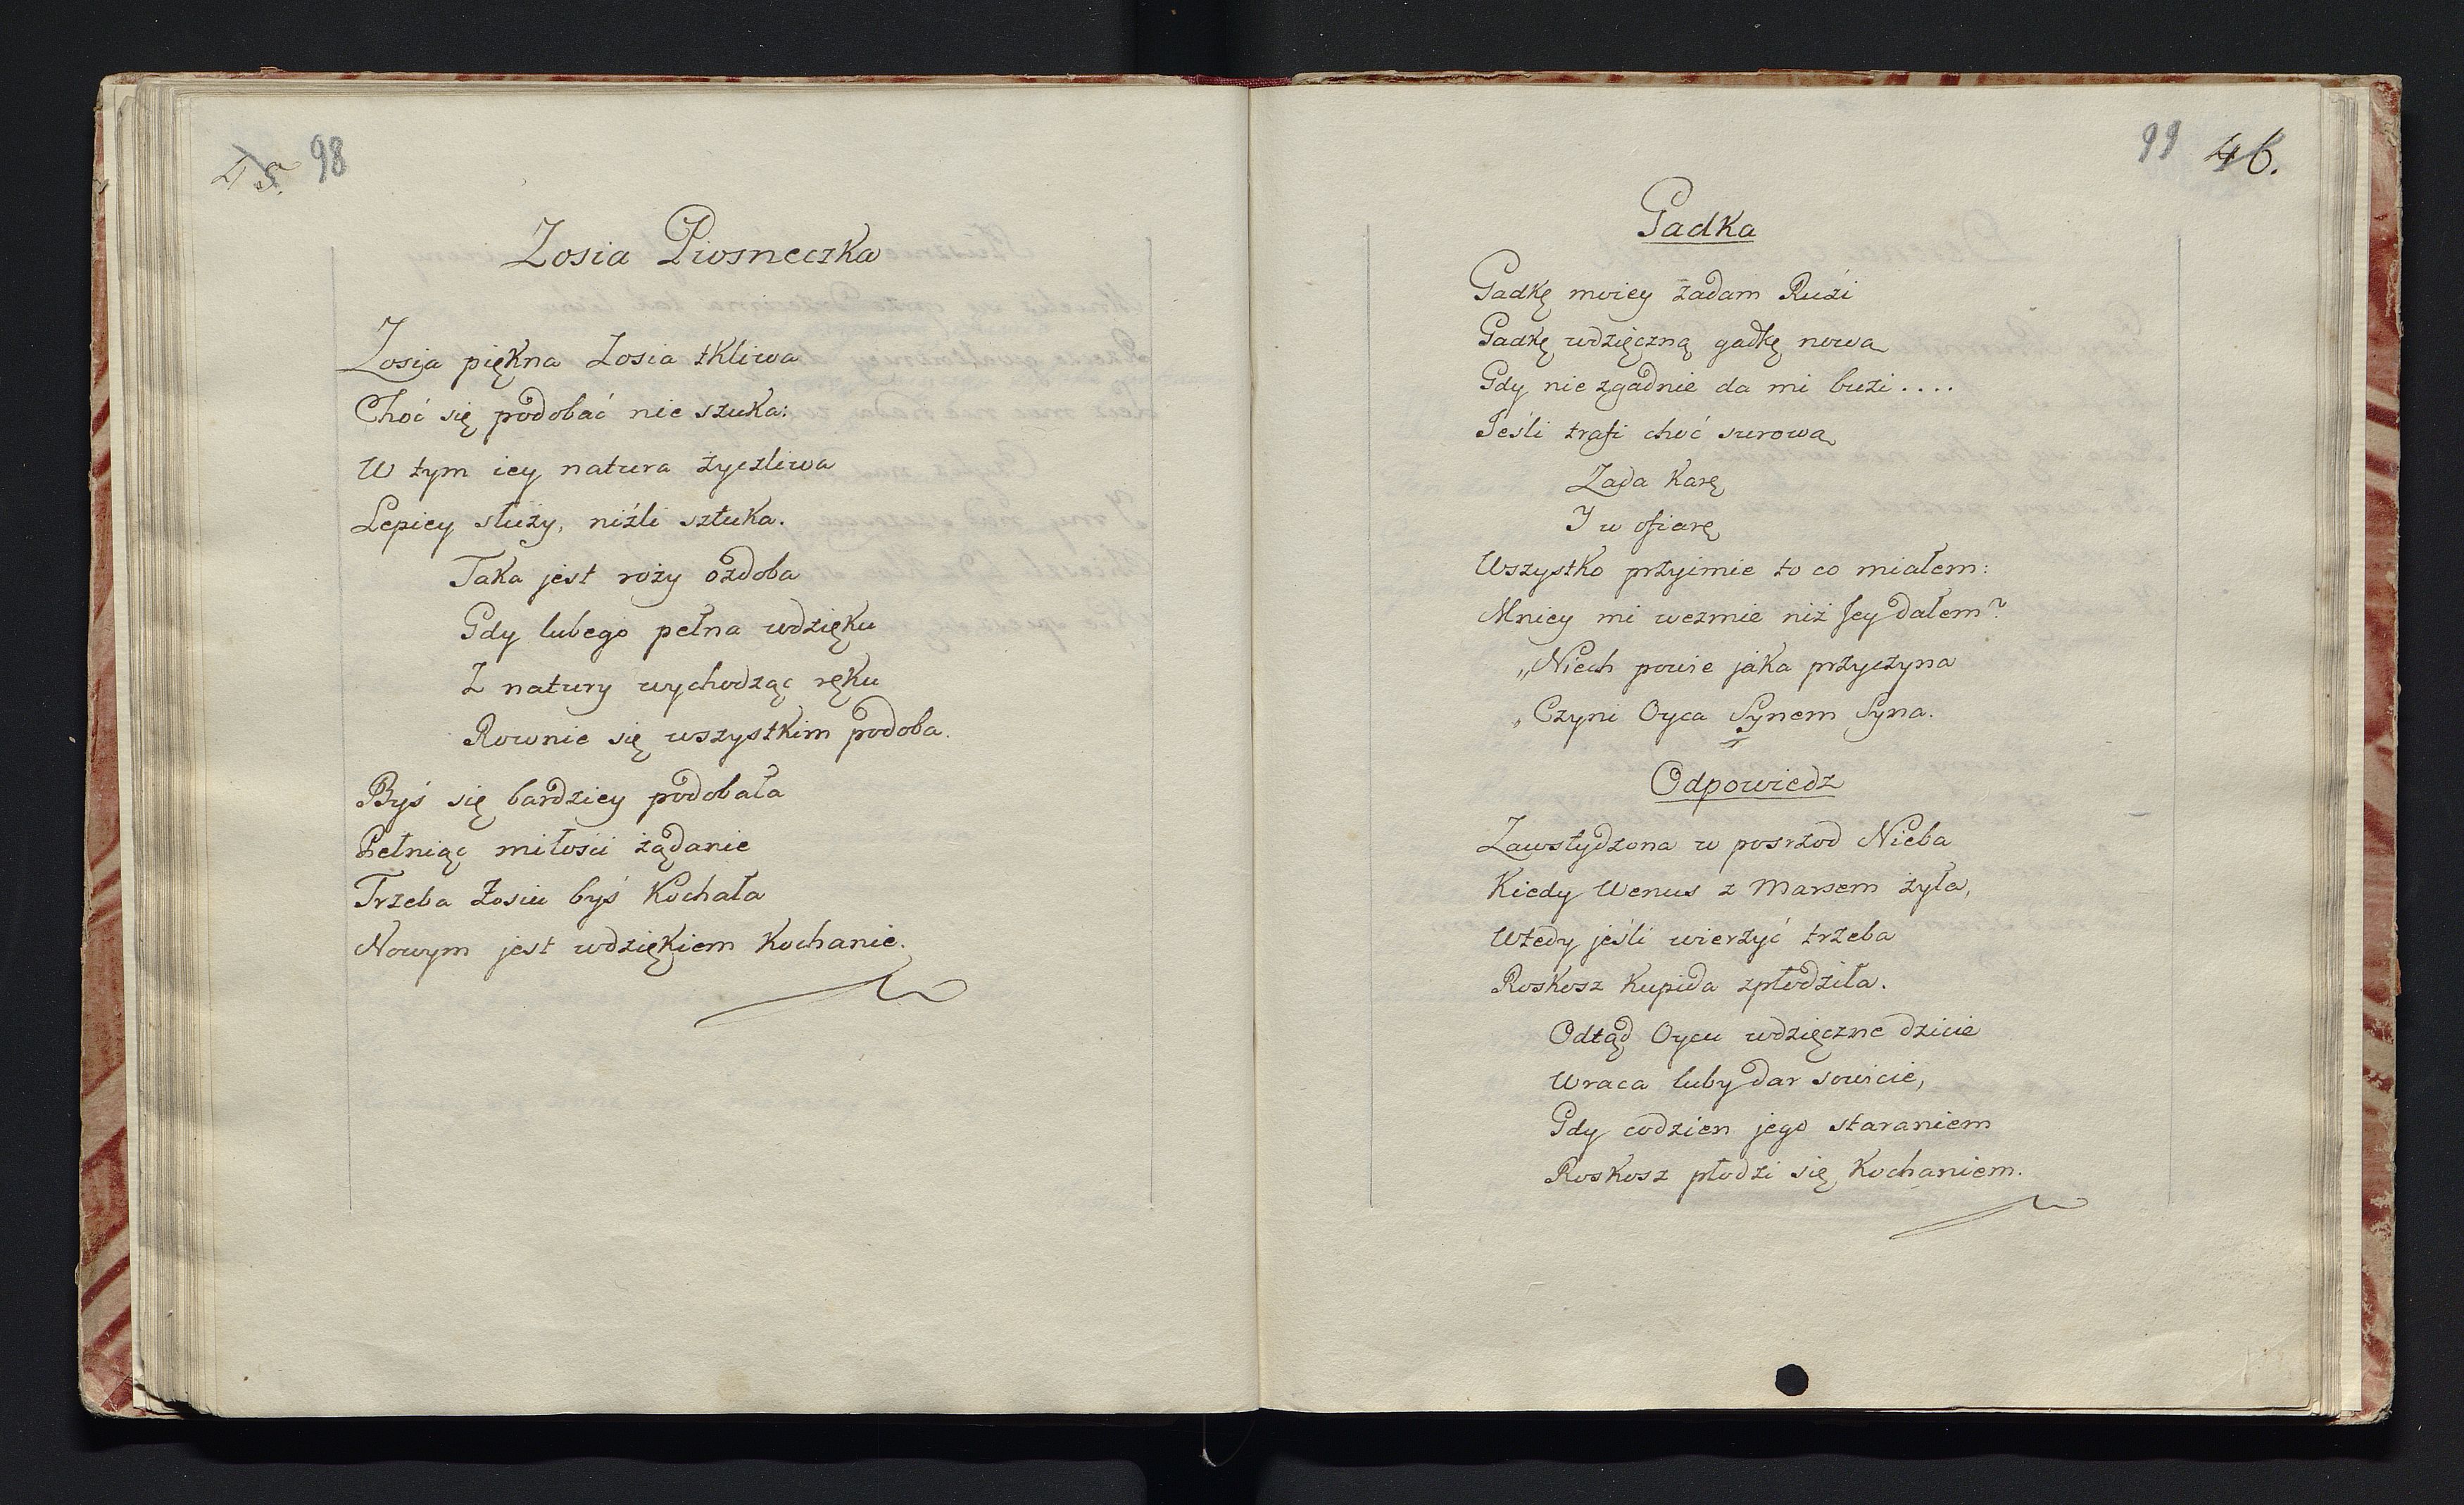 45. 98
Zosia Piosneczka
Zosia piękna Zosia tkliwa
Choć się podobać nie szuka:
W tym iey natura życzliwa
Lepiey służy, niźli sztuka.
Taka jest roży ozdoba
Gdy lubego pełna wdzięku
Z natury wychodząc ręku
Rownie się wszystkim podoba.
Byś się bardziey podobała
Pełniąc miłości żądanie
Trzeba Zosiu byś Kochała
Nowym jest wdziękiem Kochanie.
99 46.
Gadka
Gadkę moiey zadam Ruzi
Gadkę wdzięczną gadkę nową
Gdy nie zgadnie da mi buzi....
Jeśli trafi choć surową
Zada Karę
I w ofiarę
Wszystko przyimie to co miałem:
Mniey mi wezmie niż Jey dałem?
„Niech powie jaka przyczyna
„Czyni Oyca Synem Syna.
Odpowiedz
Zawstydzona w posrzod Nieba
Kiedy Wenus z Marsem żyła,
Wtedy jeśli wierzyć trzeba
Roskosz Kupida zpłodziła.
Odtąd Oycu wdzięczne dzicie
Wraca luby dar sowicie,
Gdy codzien jego staraniem
Roskosz płodzi się Kochaniem.